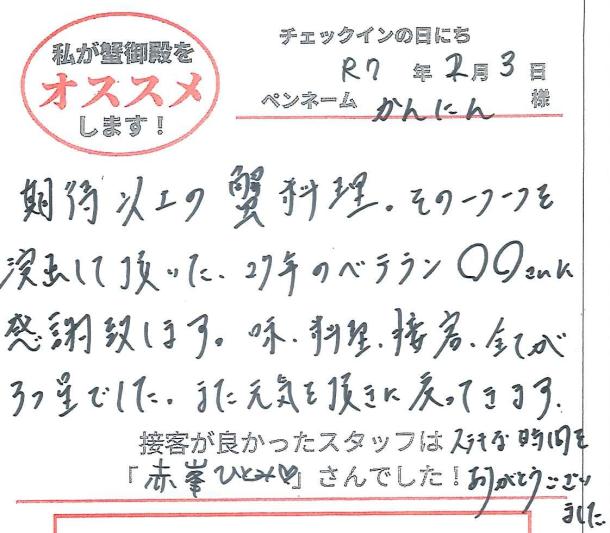 私が蟹御殿を
オススメ
します!
チェックインの日にち
R7 年 2月 3日
ペンネーム かんにん 様
期待以上の蟹料理。その一つ一つを
演出して頂いた、27年のベテラン〇〇さんに
感謝致します。味、料理、接客、全てが
3つ星でした。また元気を頂きに戻ってきます。
接客が良かったスタッフは
「赤峯ひとみ♡」さんでした!
ステキな時間を
ありがとうござい
ました